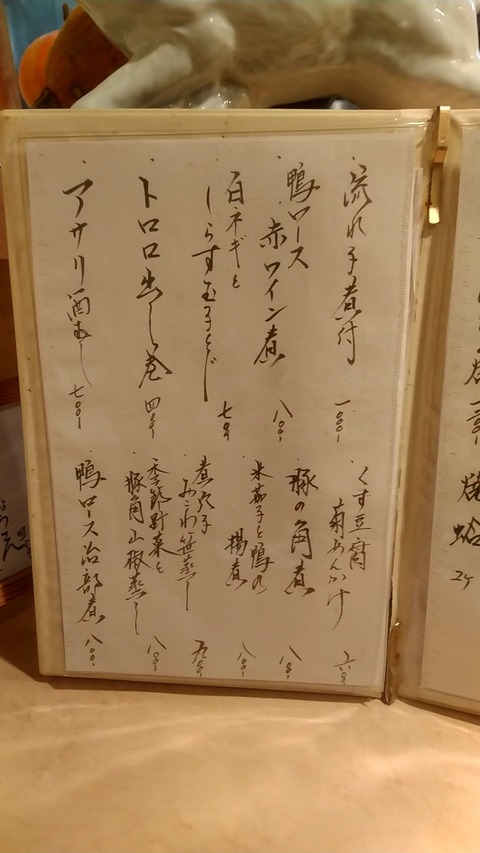 流れ子煮付 一、〇〇〇
鴨ロース
赤ワイン煮 八〇〇
白ネギと
しらす玉子とじ 七〇〇
トロロ出し巻
アサリ酒むし 七〇〇
くず豆腐
菊あんかけ 六〇〇
豚の角煮 八〇〇
米茄子と鴨の
揚煮 八〇〇
煮穴子
おこわ笹蒸し 九〇〇
季節野菜と
豚角山椒蒸し 八〇〇
鴨ロース治部煮 八〇〇
焼蛤
2ヶ